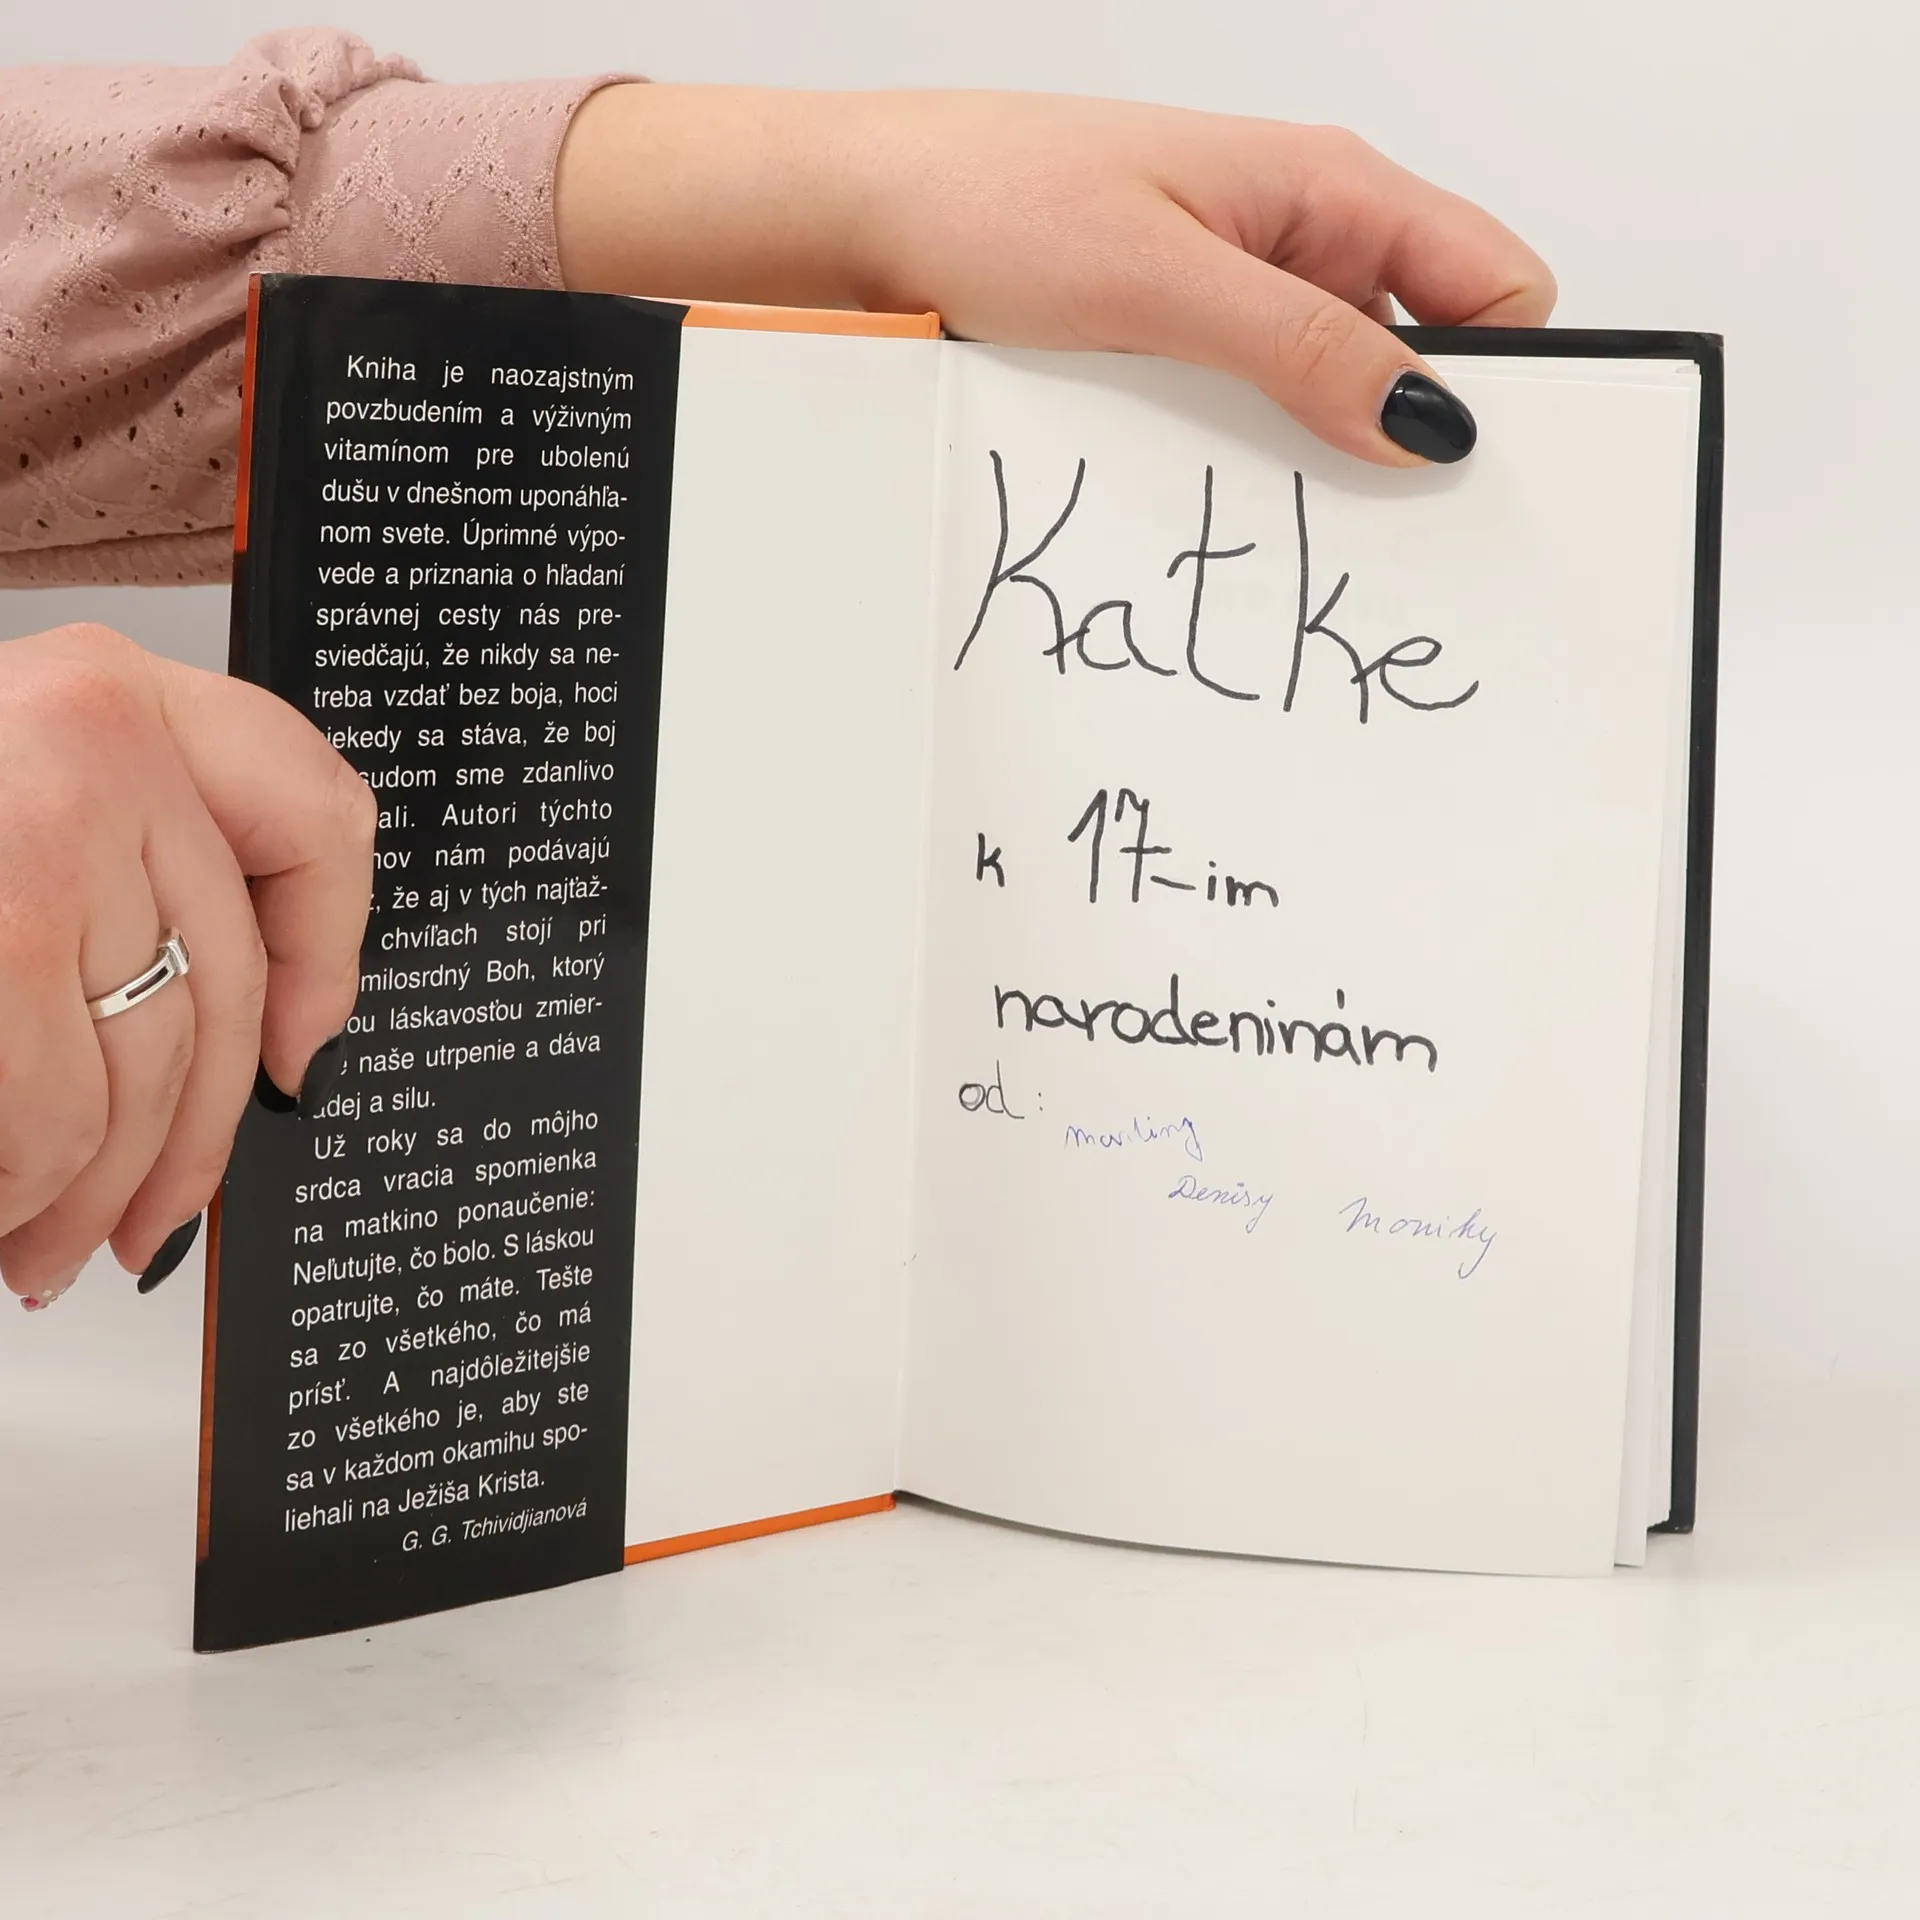 Kniha je naozajstným
povzbudením a výživným
vitamínom pre ubolenú
dušu v dnešnom uponáhľa-
nom svete. Úprimné výpo-
vede a priznania o hľadaní
správnej cesty nás pre-
sviedčajú, že nikdy sa ne-
treba vzdať bez boja, hoci
iekedy sa stáva, že boj
sudom sme zdanlivo
ali. Autori týchto
nov nám podávajú
že aj v tých najťaž-
chvíľach stojí pri
milosrdný Boh, ktorý
ou láskavosťou zmier-
naše utrpenie a dáva
ádej a silu.
Už roky sa do môjho
srdca vracia spomienka
na matkino ponaučenie:
Neľutujte, čo bolo. S láskou
opatrujte, čo máte. Tešte
sa zo všetkého, čo má
prísť. A najdôležitejšie
zo všetkého je, aby ste
sa v každom okamihu spo-
liehali na Ježiša Krista.
G. G. Tchividjianová
Katke
k 17-im
narodeninám
od:
Denisy Moniky